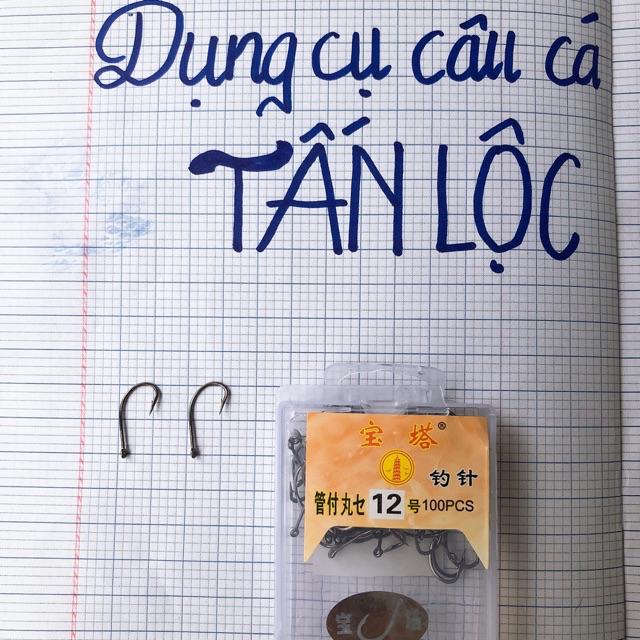 Dụng cụ câu cá
TẤN LỘC
宝塔®
钓针
管付丸セ 12 号100PCS
宝 塔